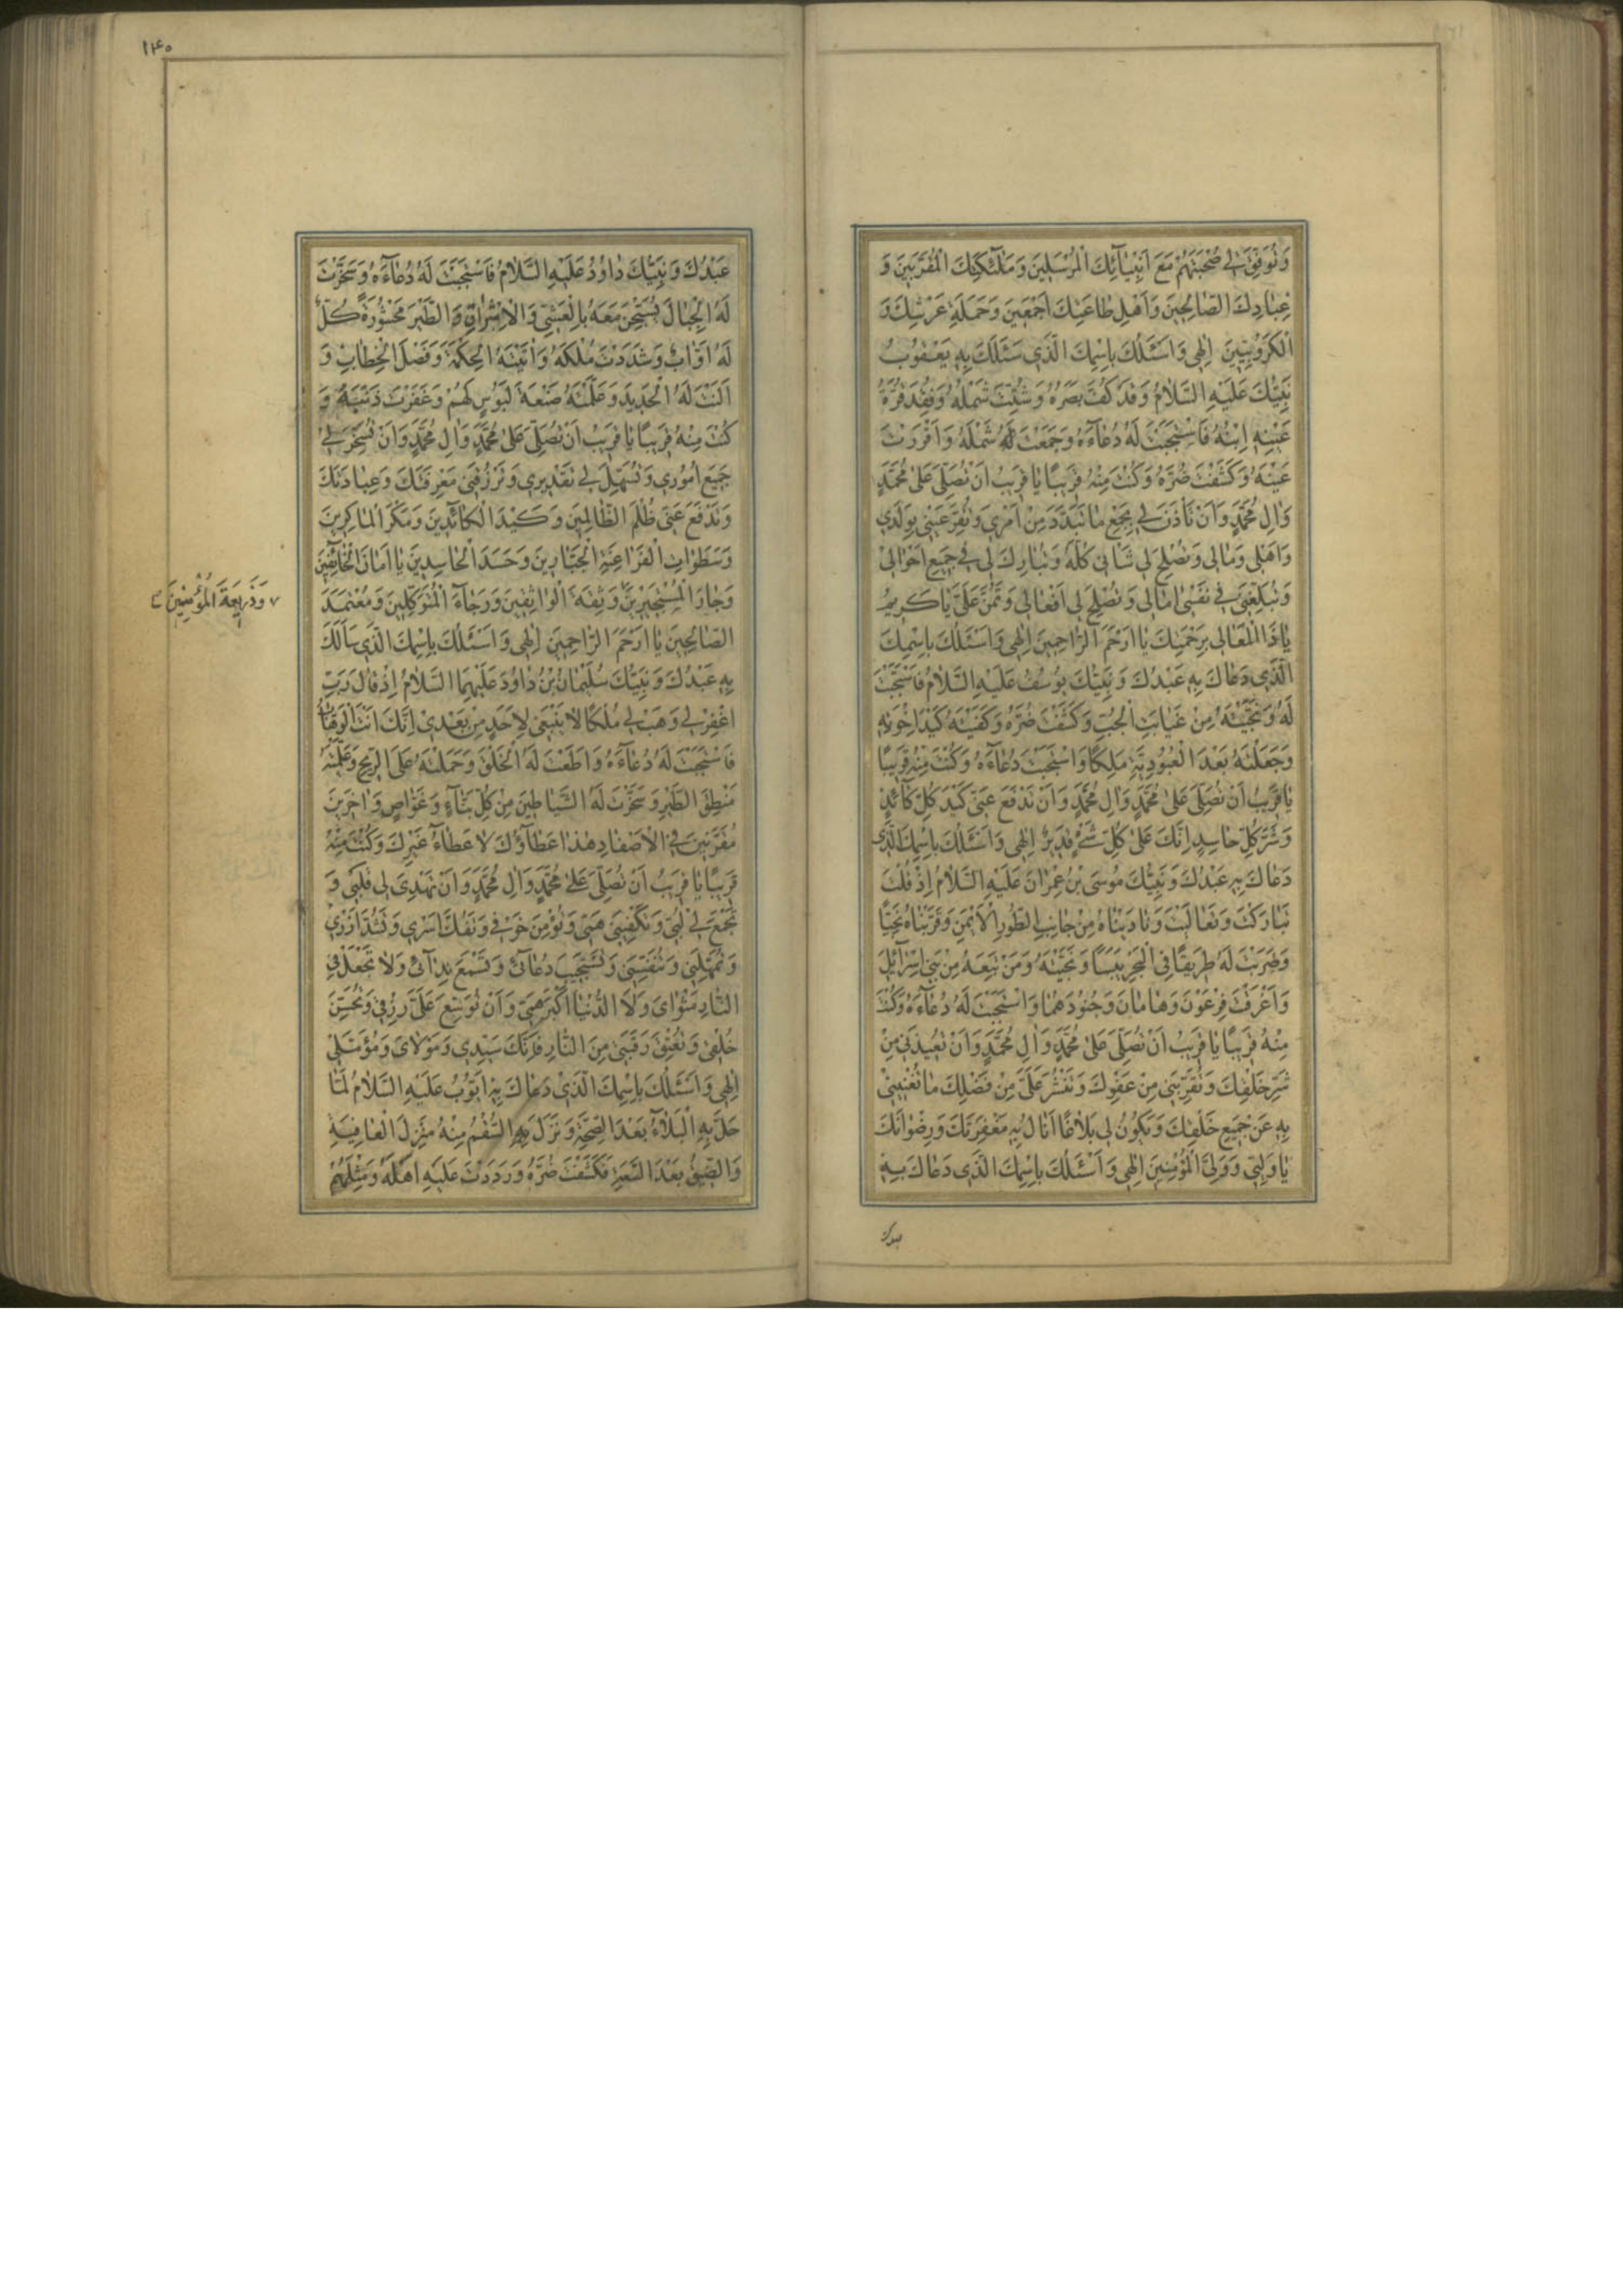 وَتُوَفِّقَ لِي صُحْبَتَهُمْ مَعَ اَنْبِيٰآئِكَ الْمُرْسَلِينَ وَمَلٰٓئِكَتِكَ الْمُقَرَّبِينَ وَ
عِبٰادِكَ الصّٰالِحِينَ وَاَهْلِ طٰاعَتِكَ اَجْمَعِينَ وَحَمَلَةِ عَرْشِكَ وَ
الْكَرُوبِيّينَ اِلٰهِي وَاَسْئَلُكَ بِاسْمِكَ الَّذِي سَئَلَكَ بِهِ يَعْقُوبُ
نَبِيُّكَ عَلَيْهِ السَّلٰامُ وَقَدْ كُفَّ بَصَرُهُ وَشُتِّتَ شَمْلُهُ وَفُقِدَ قُرَّةُ
عَيْنِهِ اِبْنُهُ فَاسْتَجَبْتَ لَهُ دُعٰآءَهُ وَجَمَعْتَ لَهُ شَمْلَهُ وَاَقْرَرْتَ
عَيْنَهُ وَكَشَفْتَ ضُرَّهُ وَكُنْتَ مِنْهُ قَرِيبًا يٰا قَرِيبُ اَنْ تُصَلِّيَ عَلىٰ مُحَمَّدٍ
وَاٰلِ مُحَمَّدٍ وَاَنْ تَاْذَنَ لِي بِجَمْعِ مٰا تَبَدَّدَ مِنْ اَمْرِي وَتُقِرَّ عَيْنِي بِوَلَدِي
وَاَهْلِي وَمٰالِي وَتُصْلِحَ لِي شَاْنِي كُلَّهُ وَتُبٰارِكَ لِي فِي جَمِيعِ اَحْوٰالِي
وَتُبَلِّغَنِي فِي نَفْسِي اٰمٰالِي وَتُصْلِحَ لِي اَفْعٰالِي وَتَمُنَّ عَلَيَّ يٰا كَرِيمُ
يٰا ذَا الْمَعٰالِي بِرَحْمَتِكَ يٰا اَرْحَمَ الرّٰاحِمِينَ اِلٰهِي وَاَسْئَلُكَ بِاسْمِكَ
الَّذِي دَعٰاكَ بِهِ عَبْدُكَ وَنَبِيُّكَ يُوسُفُ عَلَيْهِ السَّلٰامُ فَاسْتَجَبْتَ
لَهُ وَنَجَّيْتَهُ مِنْ غَيٰابَتِ الْجُبِّ وَكَشَفْتَ ضُرَّهُ وَكَفَيْتَهُ كَيْدَ اِخْوَتِهِ
وَجَعَلْتَهُ بَعْدَ الْعُبُودِيَّةِ مَلِكًا وَاسْتَجَبْتَ دُعٰآءَهُ وَكُنْتَ مِنْهُ قَرِيبًا
يٰا قَرِيبُ اَنْ تُصَلِّيَ عَلىٰ مُحَمَّدٍ وَاٰلِ مُحَمَّدٍ وَاَنْ تَدْفَعَ عَنِّي كَيْدَ كُلِّ كٰآئِدٍ
وَشَرَّ كُلِّ حٰاسِدٍ اِنَّكَ عَلىٰ كُلِّ شَيْءٍ قَدِيرٌ اِلٰهِي وَاَسْئَلُكَ بِاسْمِكَ الَّذِي
دَعٰاكَ بِهِ عَبْدُكَ وَنَبِيُّكَ مُوسَى بْنُ عِمْرٰانَ عَلَيْهِ السَّلٰامُ اِذْ قُلْتَ
تَبٰارَكْتَ وَتَعٰالَيْتَ وَنٰادَيْنٰاهُ مِنْ جٰانِبِ الطُّورِ الْاَيْمَنِ وَقَرَّبْنٰاهُ نَجِيًّا
وَضَرَبْتَ لَهُ طَرِيقًا فِي الْبَحْرِ يَبَسًا وَنَجَّيْتَهُ وَمَنْ تَبِعَهُ مِنْ بَنِي اِسْرٰآئِلَ
وَاَغْرَقْتَ فِرْعَوْنَ وَهٰامٰانَ وَجُنُودَهُمٰا وَاسْتَجَبْتَ لَهُ دُعٰآءَهُ وَكُنْتَ
مِنْهُ قَرِيبًا يٰا قَرِيبُ اَنْ تُصَلِّيَ عَلىٰ مُحَمَّدٍ وَاٰلِ مُحَمَّدٍ وَاَنْ تُعِيذَنِي مِنْ
شَرِّ خَلْقِكَ وَتُقَرِّبَنِي مِنْ عَفْوِكَ وَتَنْشُرَ عَلَيَّ مِنْ فَضْلِكَ مٰا تُغْنِينِي
بِهِ عَنْ جَمِيعِ خَلْقِكَ وَيَكُونُ لِي بَلٰاغًا اَنٰالُ بِهِ مَغْفِرَتَكَ وَرِضْوٰانَكَ
يٰا وَلِيِّي وَوَلِيَّ الْمُؤْمِنِينَ اِلٰهِي وَاَسْئَلُكَ بِاسْمِكَ الَّذِي دَعٰاكَ بِهِ
عبدك
۱۴۰
عَبْدُكَ وَنَبِيُّكَ دٰاوُدُ عَلَيْهِ السَّلٰامُ فَاسْتَجَبْتَ لَهُ دُعٰآءَهُ وَسَخَّرْتَ
لَهُ الْجِبٰالَ يُسَبِّحْنَ مَعَهُ بِالْعَشِيِّ وَالْاِشْرٰاقِ وَالطَّيْرَ مَحْشُورَةً كُلٌّ
لَهُ اَوّٰابٌ وَشَدَدْتَ مُلْكَهُ وَاٰتَيْتَهُ الْحِكْمَةَ وَفَصْلَ الْخِطٰابِ وَ
اَلَنْتَ لَهُ الْحَدِيدَ وَعَلَّمْتَهُ صَنْعَةَ لَبُوسٍ لَهُمْ وَغَفَرْتَ ذَنْبَهُ وَ
كُنْتَ مِنْهُ قَرِيبًا يٰا قَرِيبُ اَنْ تُصَلِّيَ عَلىٰ مُحَمَّدٍ وَاٰلِ مُحَمَّدٍ وَاَنْ تُسَخِّرَ لِي
جَمِيعَ اُمُورِي وَتُسَهِّلَ لِي تَقْدِيرِي وَتَرْزُقَنِي مَعْرِفَتَكَ وَعِبٰادَتَكَ
وَتَدْفَعَ عَنِّي ظُلْمَ الظّٰالِمِينَ وَكَيْدَ الْكٰائِدِينَ وَمَكْرَ الْمٰاكِرِينَ
وَسَطَوٰاتِ الْفَرٰاعِنَةِ الْجَبّٰارِينَ وَحَسَدَ الْحٰاسِدِينَ يٰا اَمٰانَ الْخٰآئِفِينَ
وَجٰارَ الْمُسْتَجِيرِينَ وَثِقَةَ الْوٰاثِقِينَ وَرَجٰآءَ الْمُتَوَكِّلِينَ وَمُعْتَمَدَ
وَذَرِيعَةَ الْمُؤْمِنِينَ
الصّٰالِحِينَ يٰا اَرْحَمَ الرّٰاحِمِينَ اِلٰهِي وَاَسْئَلُكَ بِاسْمِكَ الَّذِي سَاَلَكَ
بِهِ عَبْدُكَ وَنَبِيُّكَ سُلَيْمٰانُ بْنُ دٰاوُدَ عَلَيْهِمَا السَّلٰامُ اِذْ قٰالَ رَبِّ
اغْفِرْ لِي وَهَبْ لِي مُلْكًا لٰا يَنْبَغِي لِاَحَدٍ مِنْ بَعْدِي اِنَّكَ اَنْتَ الْوَهّٰابُ
فَاسْتَجَبْتَ لَهُ دُعٰآءَهُ وَاَطَعْتَ لَهُ الْخَلْقَ وَحَمَلْتَهُ عَلَى الرِّيحِ وَعَلَّمْتَهُ
مَنْطِقَ الطَّيْرِ وَسَخَّرْتَ لَهُ الشَّيٰاطِينَ مِنْ كُلِّ بَنّٰآءٍ وَغَوّٰاصٍ وَاٰخَرِينَ
مُقَرَّنِينَ فِي الْاَصْفٰادِ هٰذٰا عَطٰآؤُكَ لٰا عَطٰآءُ غَيْرِكَ وَكُنْتَ مِنْهُ
قَرِيبًا يٰا قَرِيبُ اَنْ تُصَلِّيَ عَلىٰ مُحَمَّدٍ وَاٰلِ مُحَمَّدٍ وَاَنْ تَهْدِيَ لِي قَلْبِي وَ
تَجْمَعَ لِي لُبِّي وَتَكْفِيَنِي هَمِّي وَتُؤْمِنَ خَوْفِي وَتَفُكَّ اَسْرِي وَتَشُدَّ اَزْرِي
وَتُمَهِّلَنِي وَتُنَفِّسَنِي وَتَسْتَجِيبَ دُعٰآئِي وَتَسْمَعَ نِدٰآئِي وَلٰا تَجْعَلْ فِي
النّٰارِ مَثْوٰايَ وَلَا الدُّنْيٰا اَكْبَرَ هَمِّي وَاَنْ تُوَسِّعَ عَلَيَّ رِزْقِي وَتُحَسِّنَ
خُلْقِي وَتُعْتِقَ رَقَبَتِي مِنَ النّٰارِ فَاِنَّكَ سَيِّدِي وَمَوْلٰايَ وَمُؤَمَّلِي
اِلٰهِي وَاَسْئَلُكَ بِاسْمِكَ الَّذِي دَعٰاكَ بِهِ اَيُّوبُ عَلَيْهِ السَّلٰامُ لَمّٰا
حَلَّ بِهِ الْبَلٰآءُ بَعْدَ الصِّحَّةِ وَنَزَلَ بِهِ السُّقْمُ مِنْهُ مَنْزِلَ الْعٰافِيَةِ
وَالضِّيقُ بَعْدَ السَّعَةِ فَكَشَفْتَ ضُرَّهُ وَرَدَدْتَ عَلَيْهِ اَهْلَهُ وَمِثْلَهُمْ